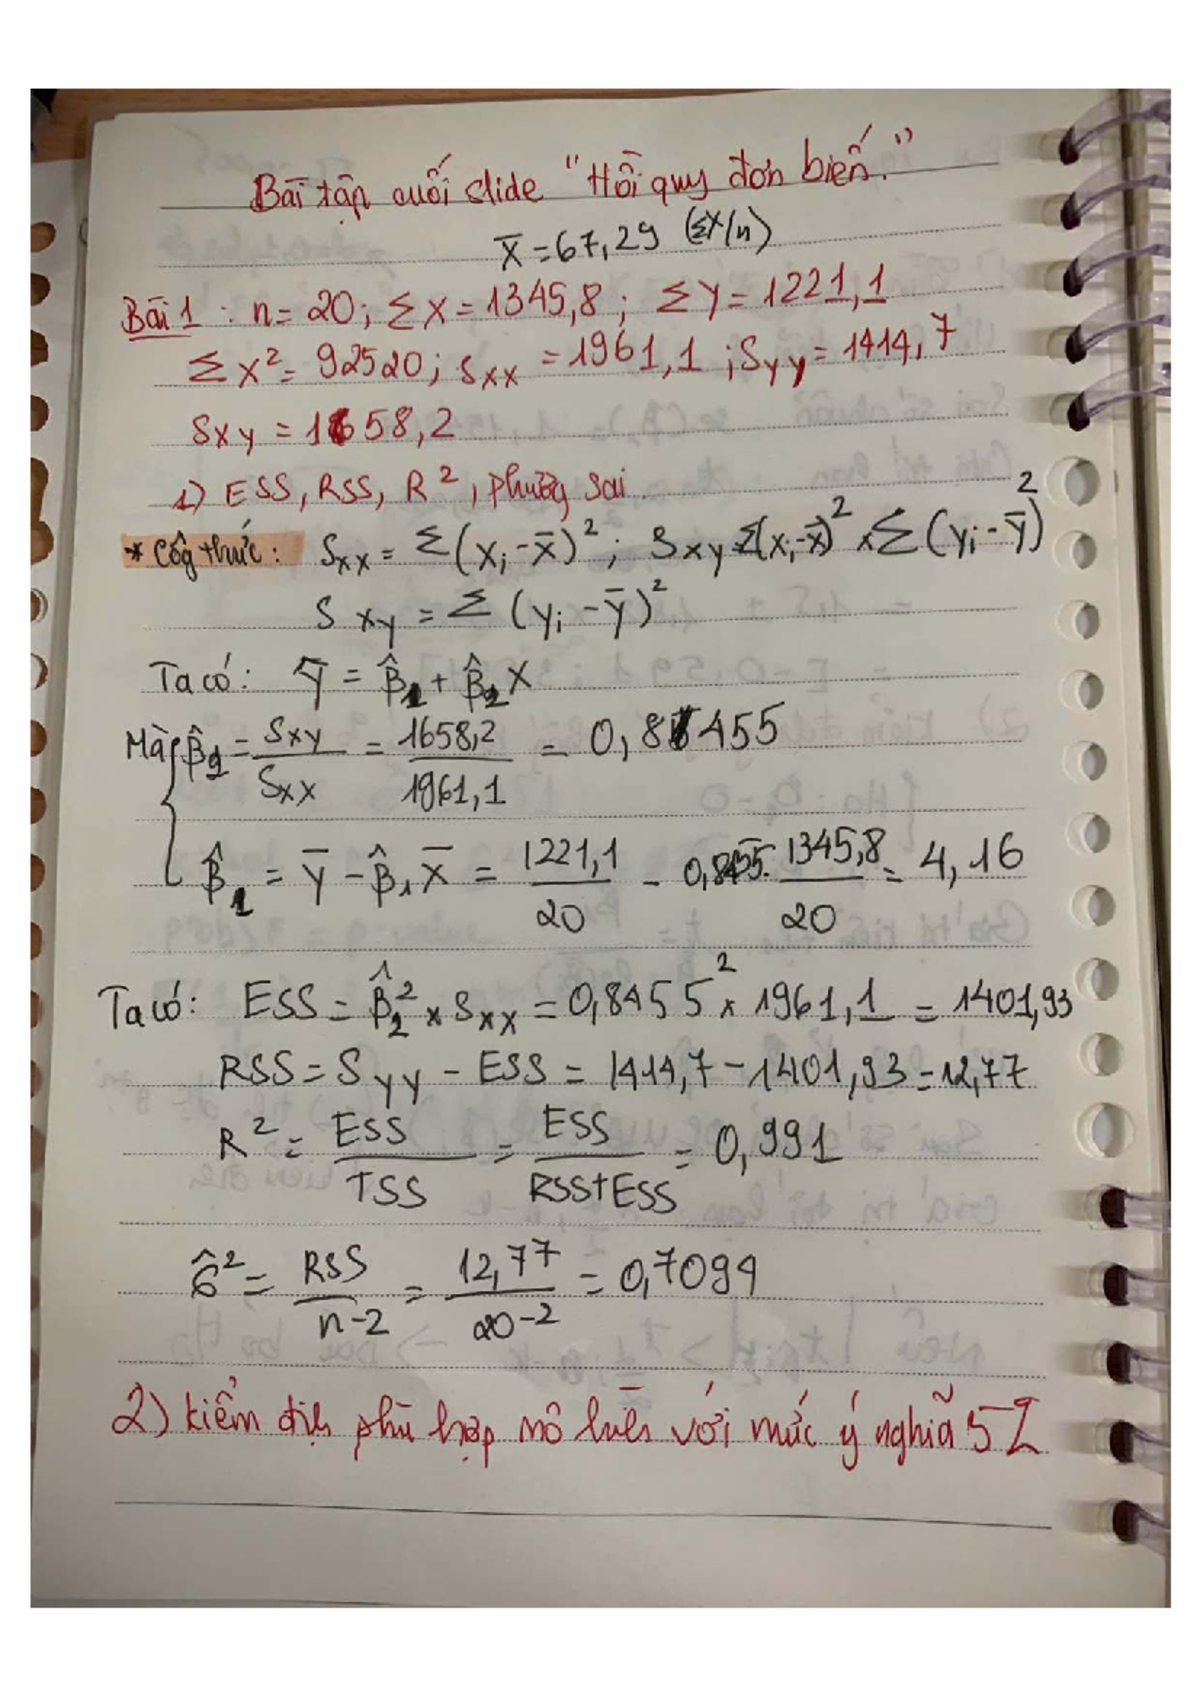 Bài tập cuối slide "Hồi quy đơn biến."
X̄ = 67,29 (ΣX/n)
Bài 1 : n = 20 ; ΣX = 1345,8 ; ΣY = 1221,1
ΣX² = 92520 ; SXX = 1961,1 ; SYY = 1414,7
SXY = 1658,2
1) ESS, RSS, R², phương sai.
* Công thức : SXX = Σ(Xi - X̄)² ; SXY = Σ(Xi - X̄)² x Σ(Yi - Ȳ)²
SXY = Σ(Yi - Ȳ)²
Ta có : Ȳ = β̂1 + β̂2 X
Mà { β̂2 = SXY / SXX = 1658,2 / 1961,1 = 0,8455
β̂1 = Ȳ - β̂1 X̄ = 1221,1 / 20 - 0,8455 . 1345,8 / 20 = 4,16
Ta có : ESS = β̂2² x SXX = 0,8455² x 1961,1 = 1401,93
RSS = SYY - ESS = 1414,7 - 1401,93 = 12,77
R² = ESS / TSS = ESS / RSS+ESS = 0,991
σ̂² = RSS / n-2 = 12,77 / 20-2 = 0,7094
2) kiểm định phù hợp mô hình với mức ý nghĩa 5%